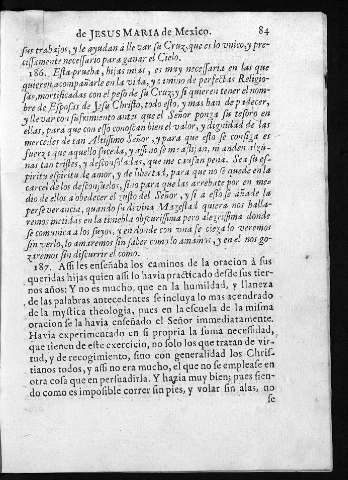 de JESUS MARIA de Mexico. 84
sus trabajos, y le ayudan à llevar su Cruz, que es lo vnico, y pre-
cissamente necessario para ganar el Cielo.
186. Esta prueba, hijas mias, es muy necessaria en las que
quieren acompañarle en la vida, y camino de perfectas Religio-
sas, mortificadas con el peso de su Cruz, y si quieren tener el nom-
bre de Esposas de Jesu Christo, todo esto, y mas han de padecer,
y llevar con sufrimiento antes que el Señor ponga su tesoro en
ellas, para que con esso conoscan bien el valor, y dignidad de las
mercedes de tan Altissimo Señor, y para que esto se consiga es
fuerza que aquello suceda, y assi no se me aflijan, ni anden algu-
nas tan tristes, y desconsoladas, que me causan pena. Sea su es-
piritu espiritu de amor, y de libertad, para que no se quede en la
carcel de los desconsuelos, sino para que las arrebate por en me-
dio de ellos à obedecer el gusto del Señor, y si à esto se añade la
perseverancia, quando su divina Magestad quiera nos halla-
remos metidas en la tiniebla obscurissima pero alegrissima donde
se comunica à los suyos, y en donde con una fe ciega lo veremos
sin verlo, lo amaremos sin saber como lo amamos, y en el nos go-
zaremos sin discurrir el como.
187. Assi les enseñaba los caminos de la oracion à sus
queridas hijas quien assi lo havia practicado desde sus tier-
nos años; Y no es mucho, que en la humildad, y llaneza
de las palabras antecedentes se incluya lo mas acendrado
de la mystica theologia, pues en la escuela de la misma
oracion se la havia enseñado el Señor immediatamente.
Havia experimentado en si propria la suma necessidad,
que tienen de este exercicio, no solo los que tratan de vir-
tud, y de recogimiento, sino con generalidad los Chris-
tianos todos, y assi no era mucho, el que no se emplease en
otra cosa que en persuadirla. Y hazia muy bien; pues sien-
do como es imposible correr sin pies, y volar sin alas, no
se